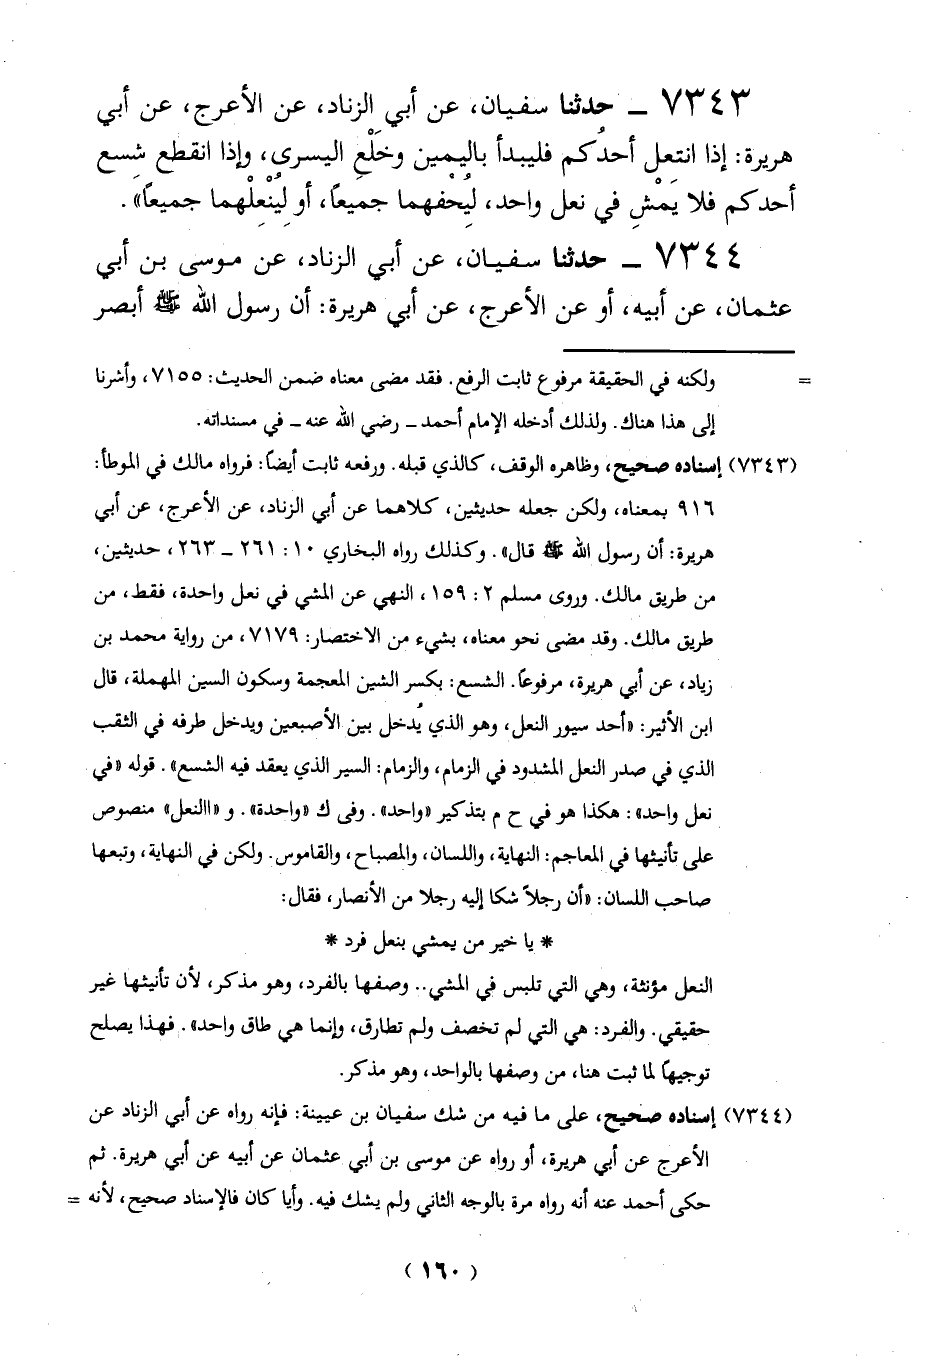 ٧٣٤٣ ــ حدثنا سفيان، عن أبي الزناد، عن الأعرج، عن أبي
هريرة: إذا انتعل أحدُكم فليبدأ باليمين وخَلْع اليسرى، وإذا انقطع شِسع
أحدكم فلا يَمْشِ في نعل واحد، لِيُحفهما جميعاً، أو لِيُنْعِلْهما جميعاً».
٧٣٤٤ ــ حدثنا سفيان، عن أبي الزناد، عن موسى بن أبي
عثمان، عن أبيه، أو عن الأعرج، عن أبي هريرة: أن رسول الله ﷺ أبصر
= ولكنه في الحقيقة مرفوع ثابت الرفع. فقد مضى معناه ضمن الحديث: ٧١٥٥، وأشرنا
إلى هذا هناك. ولذلك أدخله الإمام أحمد ــ رضي الله عنه ــ في مسنداته.
(٧٣٤٣) إسناده صحيح، وظاهره الوقف، كالذي قبله. ورفعه ثابت أيضاً: فرواه مالك في الموطأ:
٩١٦ بمعناه، ولكن جعله حديثين، كلاهما عن أبي الزناد، عن الأعرج، عن أبي
هريرة: أن رسول الله ﷺ قال». وكذلك رواه البخاري ١٠: ٢٦١ ــ ٢٦٣، حديثين،
من طريق مالك. وروى مسلم ٢: ١٥٩، النهي عن المشي في نعل واحدة، فقط، من
طريق مالك. وقد مضى نحو معناه، بشيء من الاختصار: ٧١٧٩، من رواية محمد بن
زياد، عن أبي هريرة، مرفوعاً. الشسع: بكسر الشين المعجمة وسكون السين المهملة، قال
ابن الأثير: «أحد سيور النعل، وهو الذي يُدخل بين الأصبعين ويدخل طرفه في الثقب
الذي في صدر النعل المشدود في الزمام، والزمام: السير الذي يعقد فيه الشسع». قوله «في
نعل واحد»: هكذا هو في ح م بتذكير «واحد». وفى ك «واحدة». و «االنعل» منصوص
على تأنيثها في المعاجم: النهاية، واللسان، والمصباح، والقاموس. ولكن في النهاية، وتبعها
صاحب اللسان: «أن رجلاً شكا إليه رجلا من الأنصار، فقال:
* يا خير من يمشي بنعل فرد *
النعل مؤنثة، وهي التي تلبس في المشي.. وصفها بالفرد، وهو مذكر، لأن تأنيثها غير
حقيقي. والفرد: هي التي لم تخصف ولم تطارق، وإنما هي طاق واحد». فهذا يصلح
توجيهاً لما ثبت هنا، من وصفها بالواحد، وهو مذكر.
(٧٣٤٤) إسناده صحيح، على ما فيه من شك سفيان بن عيينة: فإنه رواه عن أبي الزناد عن
الأعرج عن أبي هريرة، أو رواه عن موسى بن أبي عثمان عن أبيه عن أبي هريرة. ثم
حكى أحمد عنه أنه رواه مرة بالوجه الثاني ولم يشك فيه. وأيا كان فالإسناد صحيح، لأنه =
(١٦٠)